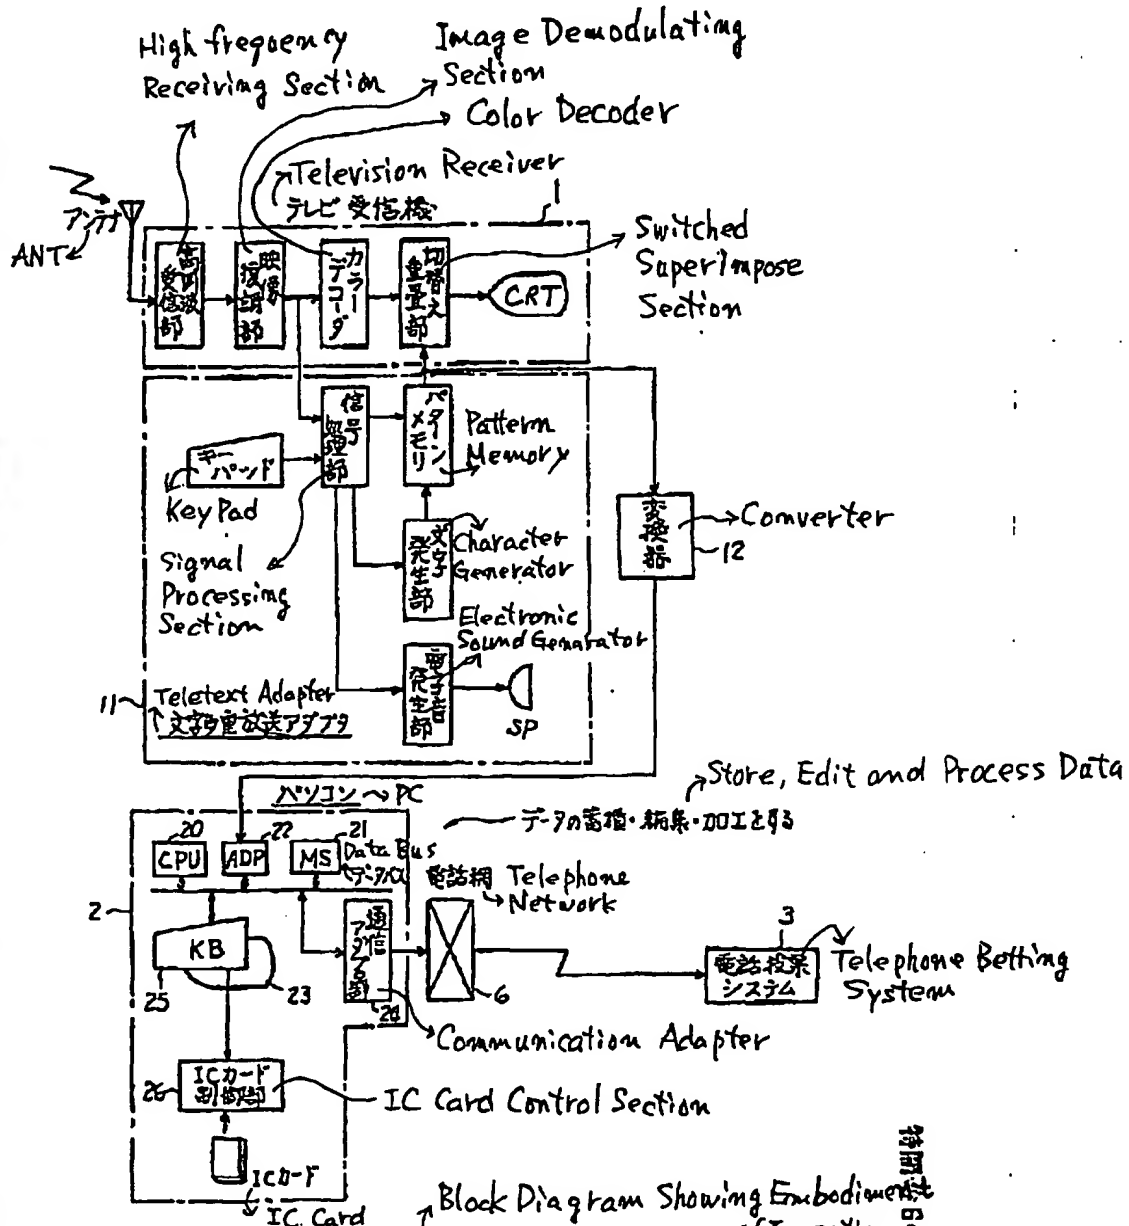 High frequency
Receiving Section
Image Demodulating
Section
Color Decoder
Television Receiver
テレビ受信機
1
アンテナ
ANT
高周波
受信部
映像
復調部
カラー
デコーダ
切替え
重畳部
CRT
Switched
Superimpose
Section
信号
処理部
パターン
メモリ
Pattern
Memory
キー
パッド
Key Pad
Signal
Processing
Section
文字
発生部
Character
Generator
変換器
Converter
12
Electronic
Sound Genarator
電子音
発生部
SP
11
Teletext Adapter
文字多重放送アダプタ
パソコン
PC
Store, Edit and Process Data
データの蓄積・編集・加工をする
20
22
21
CPU
ADP
MS
Data Bus
データバス
電話網
Telephone
Network
2
KB
25
23
通信
アダプタ部
24
6
3
電話投票
システム
Telephone Betting
System
Communication Adapter
ICカード
制御部
26
IC Card Control Section
ICカード
IC Card
特開昭6
Block Diagram Showing Embodiment